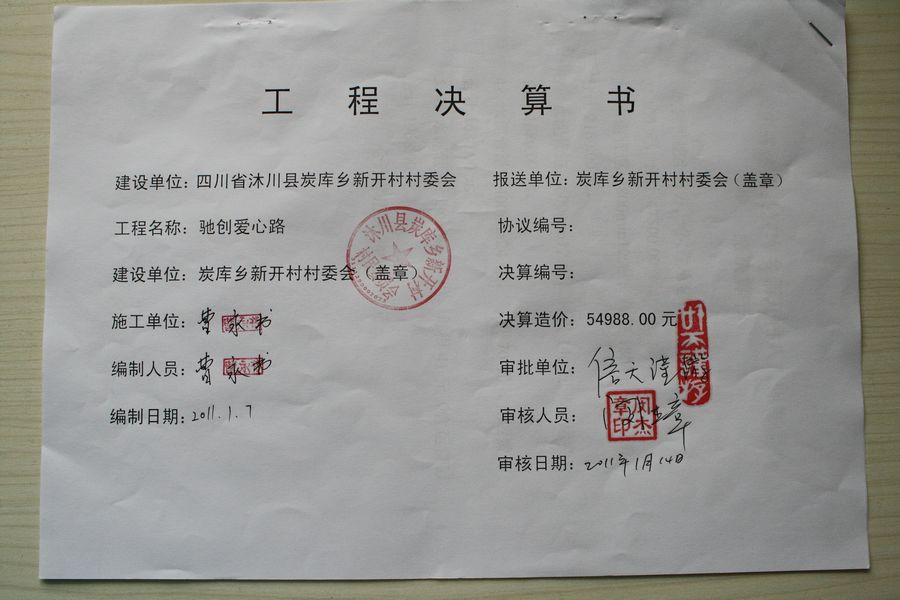 工程决算书
建设单位：四川省沐川县炭库乡新开村村委会
工程名称：驰创爱心路
建设单位：炭库乡新开村村委会（盖章）
施工单位：曹家书
编制人员：曹家书
编制日期：2011.1.7
报送单位：炭库乡新开村村委会（盖章）
协议编号：
决算编号：
决算造价：54988.00元
审批单位：信天谨
审核人员：
审核日期：2011年1月14日
沐川县炭库乡新开村
闵杰章印